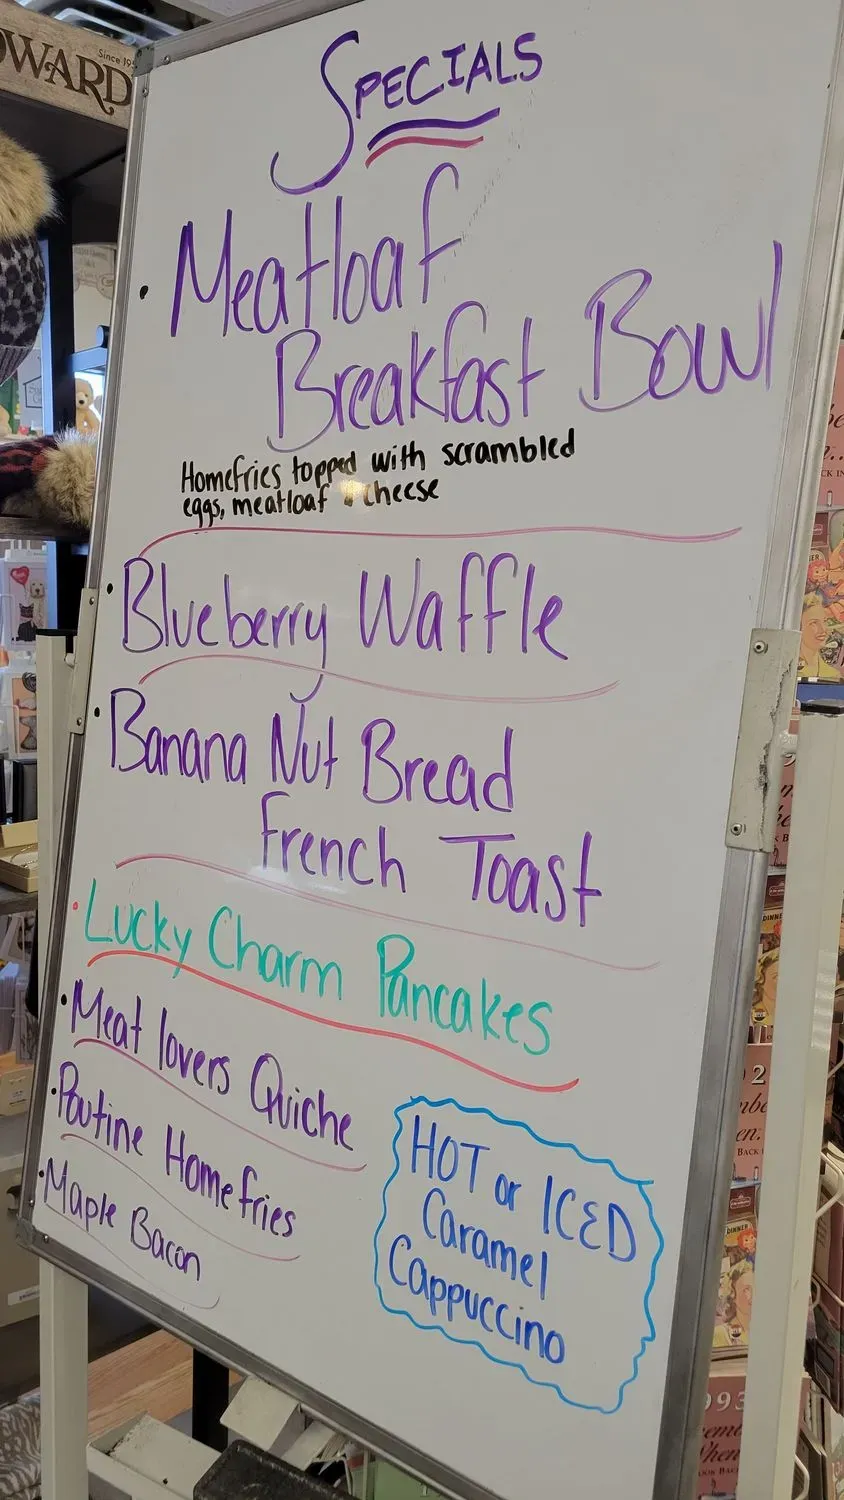 WARD
Since 19
SPECIALS
• Meatloaf
Breakfast Bowl
Homefries topped with scrambled
eggs, meatloaf & cheese
• Blueberry Waffle
• Banana Nut Bread
French Toast
• Lucky Charm Pancakes
• Meat lovers Quiche
• Poutine Homefries
• Maple Bacon
HOT or ICED
Caramel
Cappuccino
DINNER
993